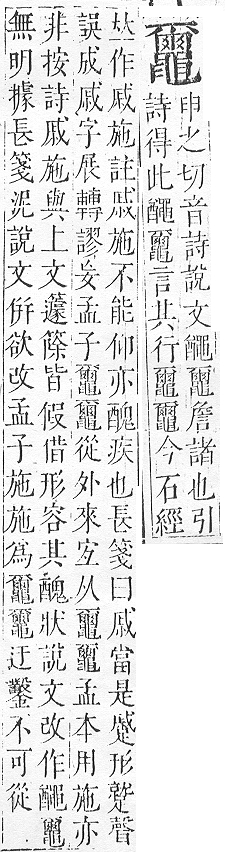 𪓿
申之切音詩說文𪓰𪓿詹諸也引
詩得此𪓰𪓿言其行𪓿𪓿今石經
𠀤作戚施註戚施不能仰亦醜疾也長箋曰戚當是蹙形蹵聲
誤成戚字展轉謬妄孟子𪓿𪓿從外來宐从𪓿𪓿孟本用施亦
非按詩戚施與上文籧篨皆假借形容其醜狀說文改作𪓰𪓿
無明據長箋泥說文倂欲改孟子施施為𪓿𪓿迂鑿不可從